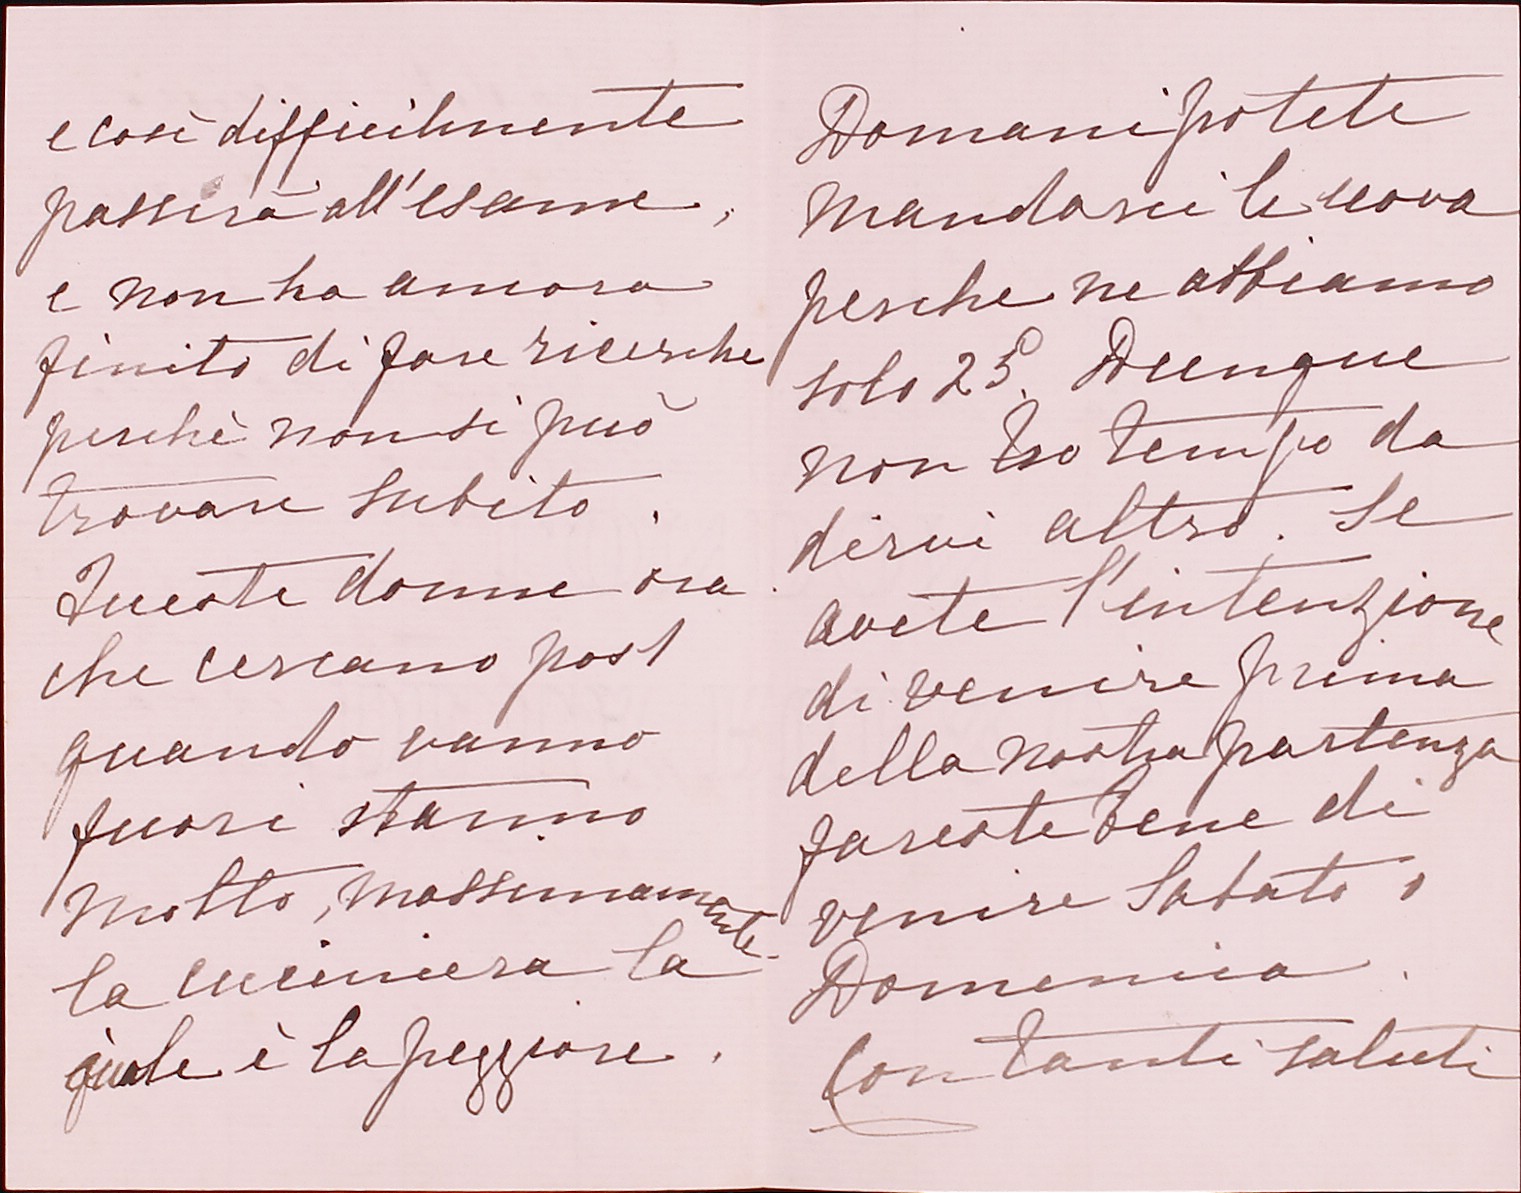 e così difficilmente
passerà all'esame,
e non ha ancora
finito di fare ricerche
perchè non si può
trovare subito.
Queste donne ora
che cercano post
quando vanno
fuori stanno
molto, massimamente
la cuciniera la
quale è la peggiore.
Domani potete
mandarci le uova
perche ne abbiamo
solo 25. Dunque
non ho tempo da
dirvi altro. Se
avete l'intenzione
di venire prima
della nostra partenza
fareste bene di
venire Sabato o
Domenica.
Con tanti saluti